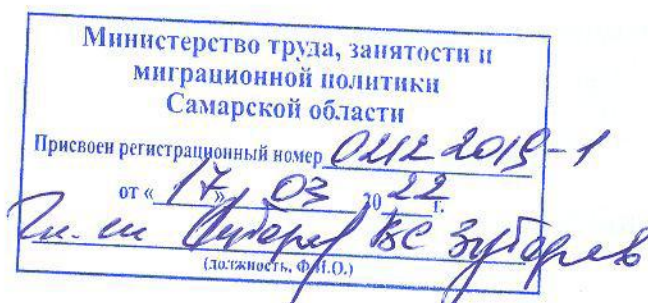 Министерство труда, занятости и
миграционной политики
Самарской области
Присвоен регистрационный номер 01122019-1
от « 17 » 03 20 22 г.
Гл. сп ВС Зубарев
(должность, Ф.И.О.)